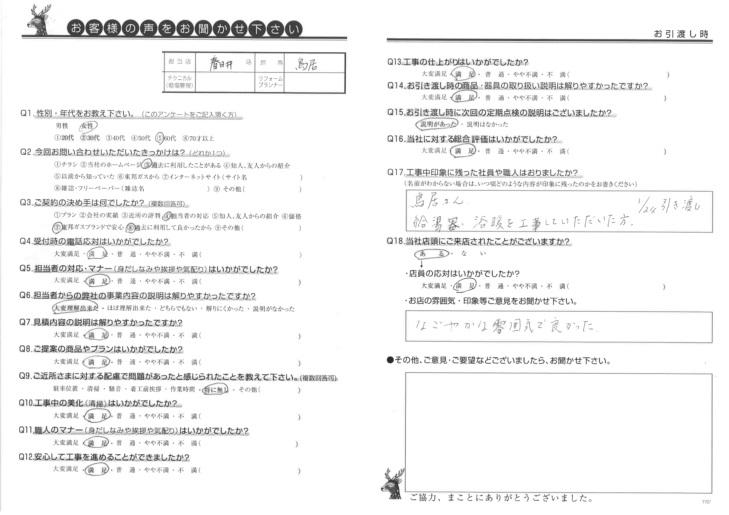 お客様の声をお聞かせ下さい
お引渡し時
担当店 春日井 店 担当 鳥居
テクニカル(現場管理) リフォームプランナー
Q1.性別・年代をお教え下さい。(このアンケートをご記入頂く方)
男性 女性
①20代 ②30代 ③40代 ④50代 ⑤60代 ⑥70才以上
Q2.今回お問い合わせいただいたきっかけは?(どれか1つ)
①チラシ ②当社のホームページ ③過去に利用したことがある ④知人、友人からの紹介
⑤以前から知っていた ⑥東邦ガスから ⑦インターネットサイト(サイト名 )
⑧雑誌・フリーペーパー(雑誌名 ) ⑨その他( )
Q3.ご契約の決め手は何でしたか?(複数回答可)
①プラン ②会社の実績 ③近所の評判 ④担当者の対応 ⑤知人、友人からの紹介 ⑥価格
⑦東邦ガスブランドで安心 ⑧過去に利用して良かったから ⑨その他( )
Q4.受付時の電話応対はいかがでしたか?
大変満足・満 足・普 通・やや不満・不 満( )
Q5.担当者の対応・マナー(身だしなみや挨拶や気配り)はいかがでしたか?
大変満足・満 足・普 通・やや不満・不 満( )
Q6.担当者からの弊社の事業内容の説明は解りやすかったですか?
大変理解出来た・ほぼ理解出来た・どちらでもない・解りにくかった・説明がなかった
Q7.見積内容の説明は解りやすかったですか?
大変満足・満 足・普 通・やや不満・不 満( )
Q8.ご提案の商品やプランはいかがでしたか?
大変満足・満 足・普 通・やや不満・不 満( )
Q9.ご近所さまに対する配慮で問題があったと感じられたことを教えて下さい。(複数回答可)
駐車位置・清掃・騒音・着工前挨拶・作業時間・特に無し・その他( )
Q10.工事中の美化(清掃)はいかがでしたか?
大変満足・満 足・普 通・やや不満・不 満( )
Q11.職人のマナー(身だしなみや挨拶や気配り)はいかがでしたか?
大変満足・満 足・普 通・やや不満・不 満( )
Q12.安心して工事を進めることができましたか?
大変満足・満 足・普 通・やや不満・不 満( )
Q13.工事の仕上がりはいかがでしたか?
大変満足・満 足・普 通・やや不満・不 満( )
Q14.お引き渡し時の商品・器具の取り扱い説明は解りやすかったですか?
大変満足・満 足・普 通・やや不満・不 満( )
Q15.お引き渡し時に次回の定期点検の説明はございましたか?
説明があった・説明はなかった
Q16.当社に対する総合評価はいかがでしたか?
大変満足・満 足・普 通・やや不満・不 満( )
Q17.工事中印象に残った社員や職人はおりましたか?
(名前がわからない場合は、いつ頃どのような内容が印象に残ったのかをお書きください)
鳥居さん 1/24 引き渡し
給湯器、浴暖を工事していただいた方.
Q18.当社店頭にご来店されたことがございますか?
あ る・な い
・店員の応対はいかがでしたか?
大変満足・満 足・普 通・やや不満・不 満( )
・お店の雰囲気・印象等ご意見をお聞かせ下さい。
なごやかな雰囲気で良かった
●その他、ご意見・ご要望などございましたら、お聞かせ下さい。
ご協力、まことにありがとうございました。